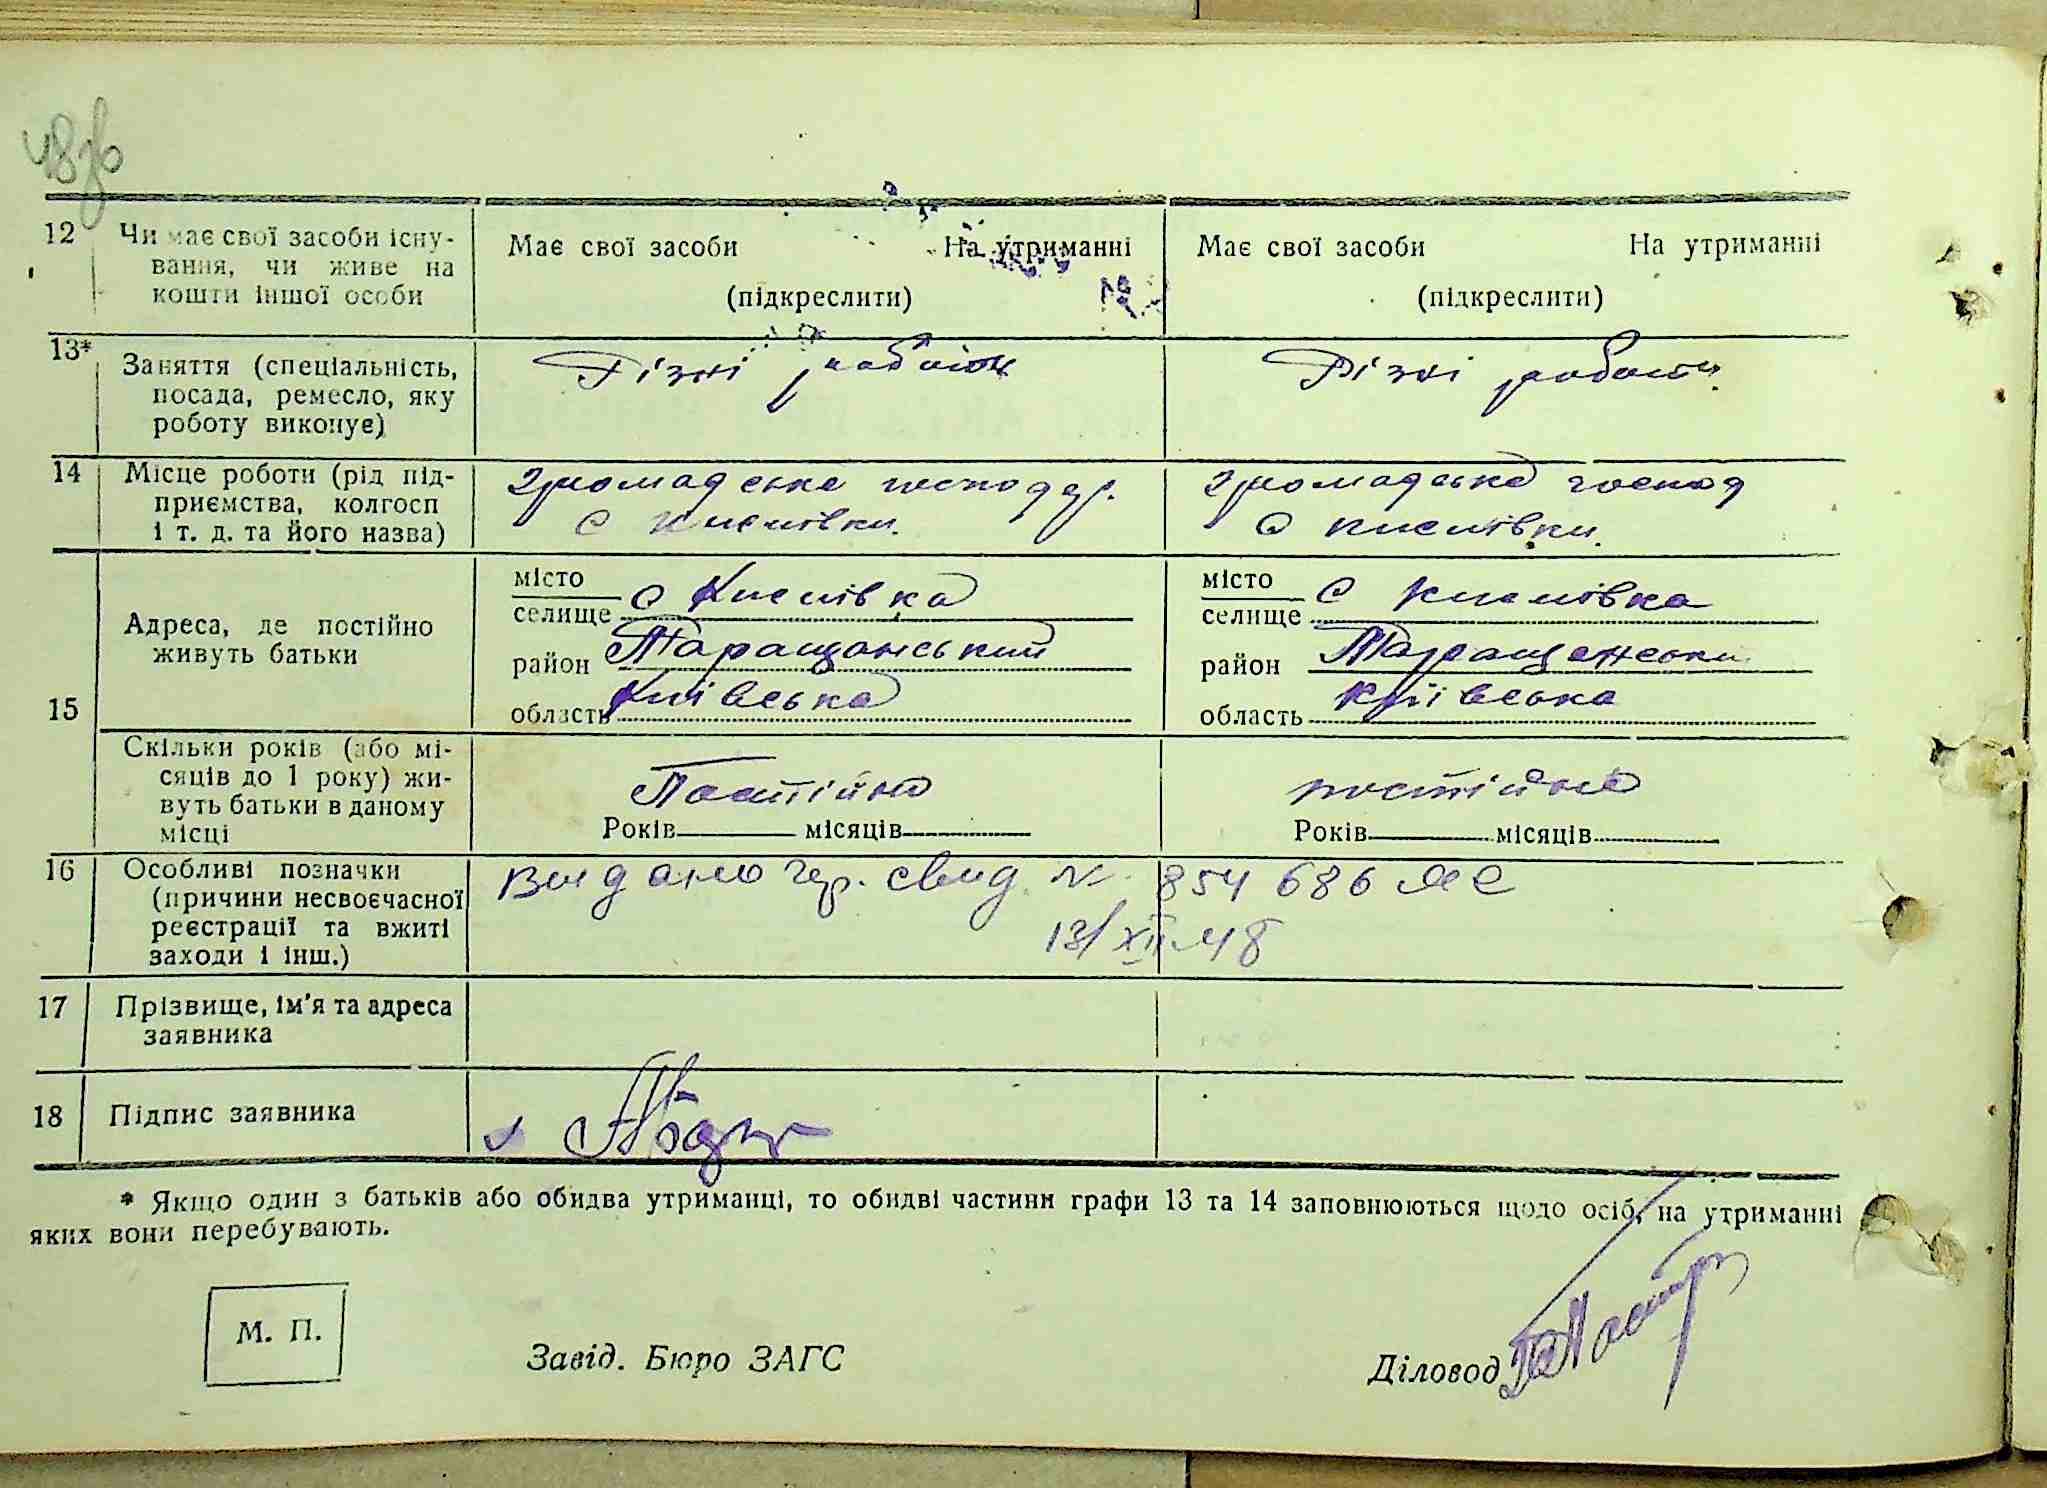 48зв
12 Чи має свої засоби існу- Має свої засоби На утриманні Має свої засоби На утриманні
вання, чи живе на
кошти іншої особи (підкреслити) (підкреслити)
13* Заняття (спеціальність, Різні роботи Різні роботи
посада, ремесло, яку
роботу виконує)
14 Місце роботи (рід під- громадське господар. громадське господ
приємства, колгосп с Кислівки. с Кислівки.
і т. д. та його назва)
15 Адреса, де постійно
живуть батьки
місто
селище с Кислівка
район Таращанський
область Київська
місто
селище с Кислівка
район Таращанський
область Київська
Скільки років (або мі-
сяців до 1 року) жи- Постійно постійно
вуть батьки в даному
місці Років місяців Років місяців
16 Особливі позначки Видано гер. свид. № 854686 ЯЄ
(причини несвоєчасної
реєстрації та вжиті 13/XII 48
заходи і інш.)
17 Прізвище, ім'я та адреса
заявника
18 Підпис заявника
* Якщо один з батьків або обидва утриманці, то обидві частини графи 13 та 14 заповнюються щодо осіб, на утриманні
яких вони перебувають.
М. П.
Завід. Бюро ЗАГС Діловод